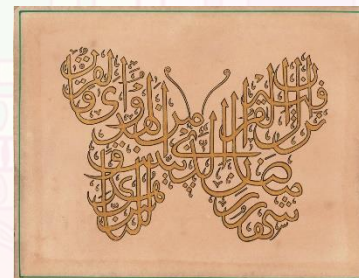 شهر رمضان الذي
انزل فيه القرآن
هدى للناس
وبينات
من الهدى والفرقان